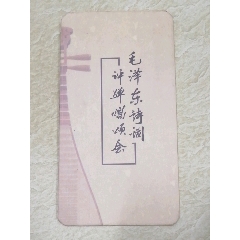 毛泽东诗词
评弹演唱会